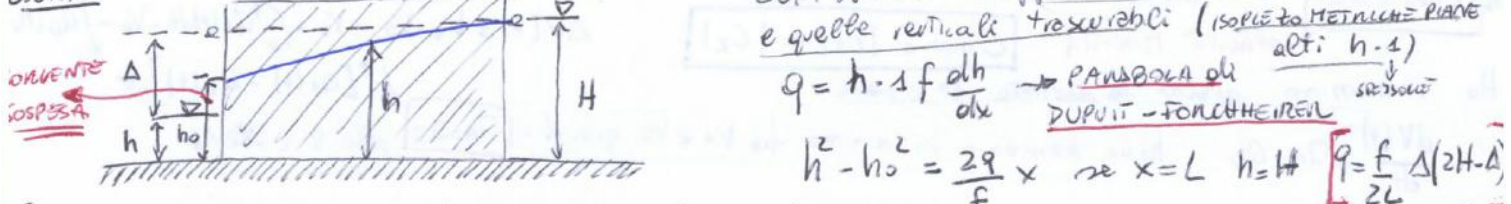 SORGENTE
SOSPESA
Δ
h
h₀
h
H
e quelle verticali trascurabili (ISOPIEZOMETRICHE PIANE
alti h·1)
spessore
q = h·1 f dh/dx → PARABOLA di
DUPUIT-FORCHHEIMER
h² - h₀² = 2q/f x se x=L h=H q = f/2L Δ(2H-Δ)